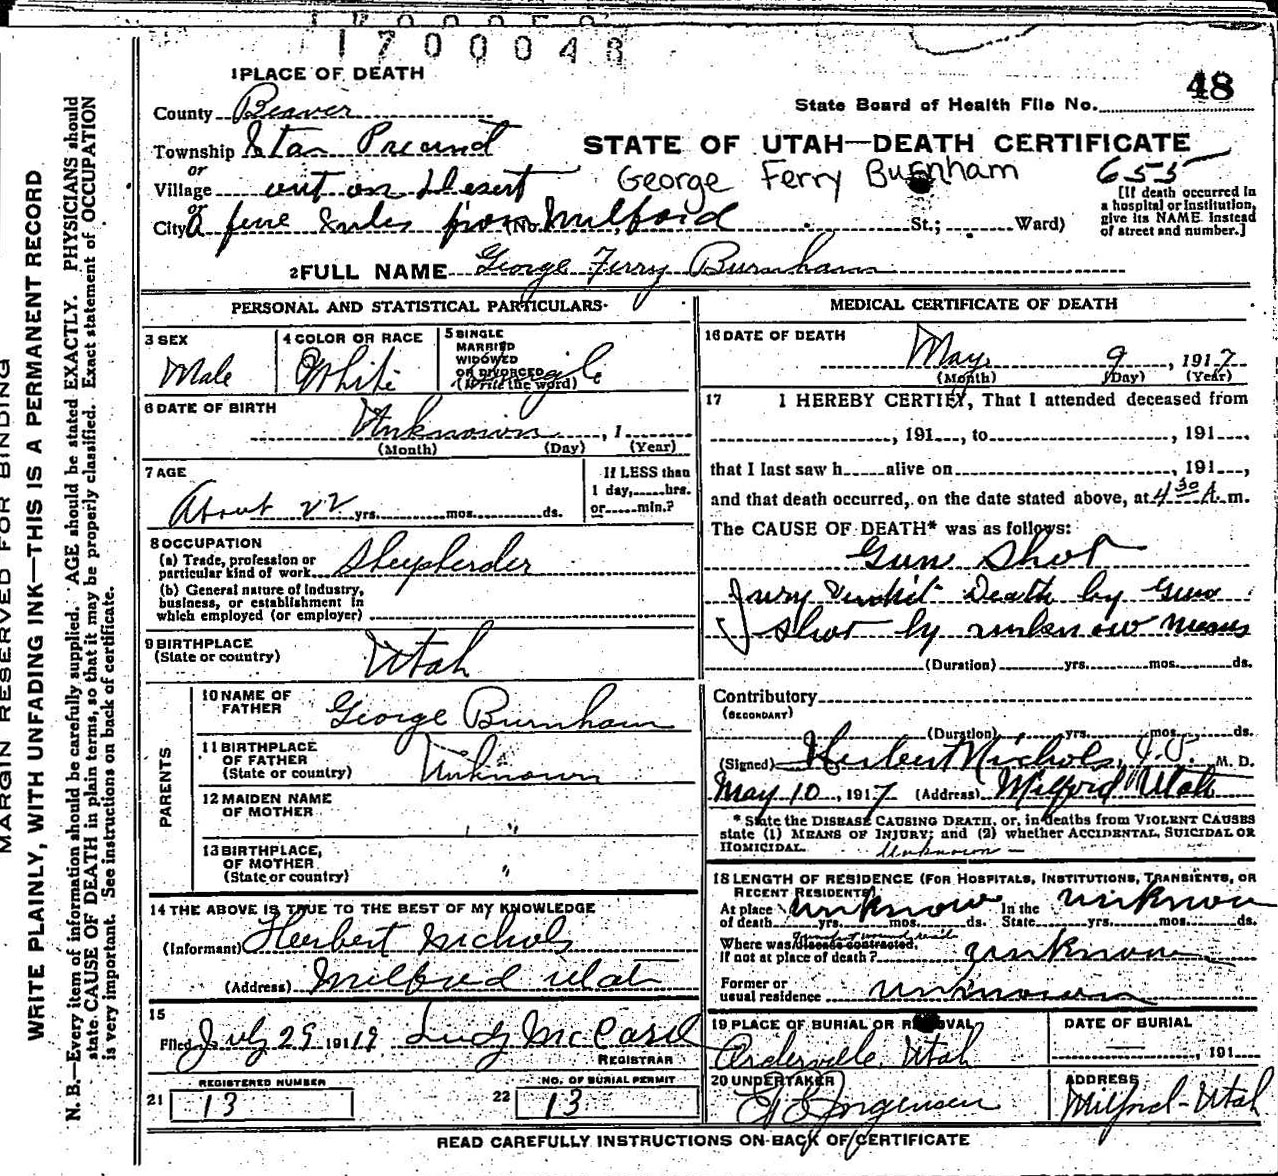 1700048
48
1 PLACE OF DEATH
State Board of Health File No.
County Beaver
STATE OF UTAH—DEATH CERTIFICATE
Township Star Precinct
or
Village out on Desert
George Ferry Burnham 655
or
City A few miles from (No. Milford St.; Ward)
[If death occurred in
a hospital or institution,
give its NAME instead
of street and number.]
2 FULL NAME George Ferry Burnham
PERSONAL AND STATISTICAL PARTICULARS
3 SEX
Male
4 COLOR OR RACE
White
5 SINGLE
MARRIED
WIDOWED
OR DIVORCED
(Write the word)
Single
6 DATE OF BIRTH
Unknown, 1
(Month) (Day) (Year)
7 AGE
About 22 yrs. mos. ds.
If LESS than
1 day, hrs.
or min.?
8 OCCUPATION
(a) Trade, profession or
particular kind of work Sheepherder
(b) General nature of industry,
business, or establishment in
which employed (or employer)
9 BIRTHPLACE
(State or country) Utah
PARENTS
10 NAME OF
FATHER George Burnham
11 BIRTHPLACE
OF FATHER
(State or country) Unknown
12 MAIDEN NAME
OF MOTHER " "
13 BIRTHPLACE,
OF MOTHER
(State or country) "
14 THE ABOVE IS TRUE TO THE BEST OF MY KNOWLEDGE
(Informant) Herbert Nichols
(Address) Milford Utah
15
Filed July 29 191
REGISTRAR
REGISTERED NUMBER
21 13
NO. OF BURIAL PERMIT
22 13
MEDICAL CERTIFICATE OF DEATH
16 DATE OF DEATH
May 9, 1917
(Month) (Day) (Year)
17 I HEREBY CERTIFY, That I attended deceased from
, 191 , to , 191 ,
that I last saw h alive on , 191 ,
and that death occurred, on the date stated above, at 4 30 A. m.
The CAUSE OF DEATH* was as follows:
Gun Shot
Jury Verdict Death by Gun
Shot by unknow means
(Duration) yrs. mos. ds.
Contributory
(SECONDARY)
(Duration) yrs. mos. ds.
(Signed) Herbert Nichols, J.P. M. D.
May 10, 1917 (Address) Milford Utah
* State the DISEASE CAUSING DEATH, or, in deaths from VIOLENT CAUSES
state (1) MEANS OF INJURY; and (2) whether ACCIDENTAL, SUICIDAL OR
HOMICIDAL. Unknown
18 LENGTH OF RESIDENCE (FOR HOSPITALS, INSTITUTIONS, TRANSIENTS, OR
RECENT RESIDENTS)
At place unknow In the unknow
of death yrs. mos. ds. State yrs. mos. ds.
Where was disease contracted,
If not at place of death? unknown
Former or
usual residence unknown
19 PLACE OF BURIAL OR REMOVAL
Orderville, Utah
DATE OF BURIAL
— , 191
20 UNDERTAKER
Jorgensen
ADDRESS
Milford - Utah
READ CAREFULLY INSTRUCTIONS ON BACK OF CERTIFICATE
MARGIN RESERVED FOR BINDING
WRITE PLAINLY, WITH UNFADING INK—THIS IS A PERMANENT RECORD
N. B.—Every item of information should be carefully supplied. AGE should be stated EXACTLY. PHYSICIANS should
state CAUSE OF DEATH in plain terms, so that it may be properly classified. Exact statement of OCCUPATION
is very important. See instructions on back of certificate.